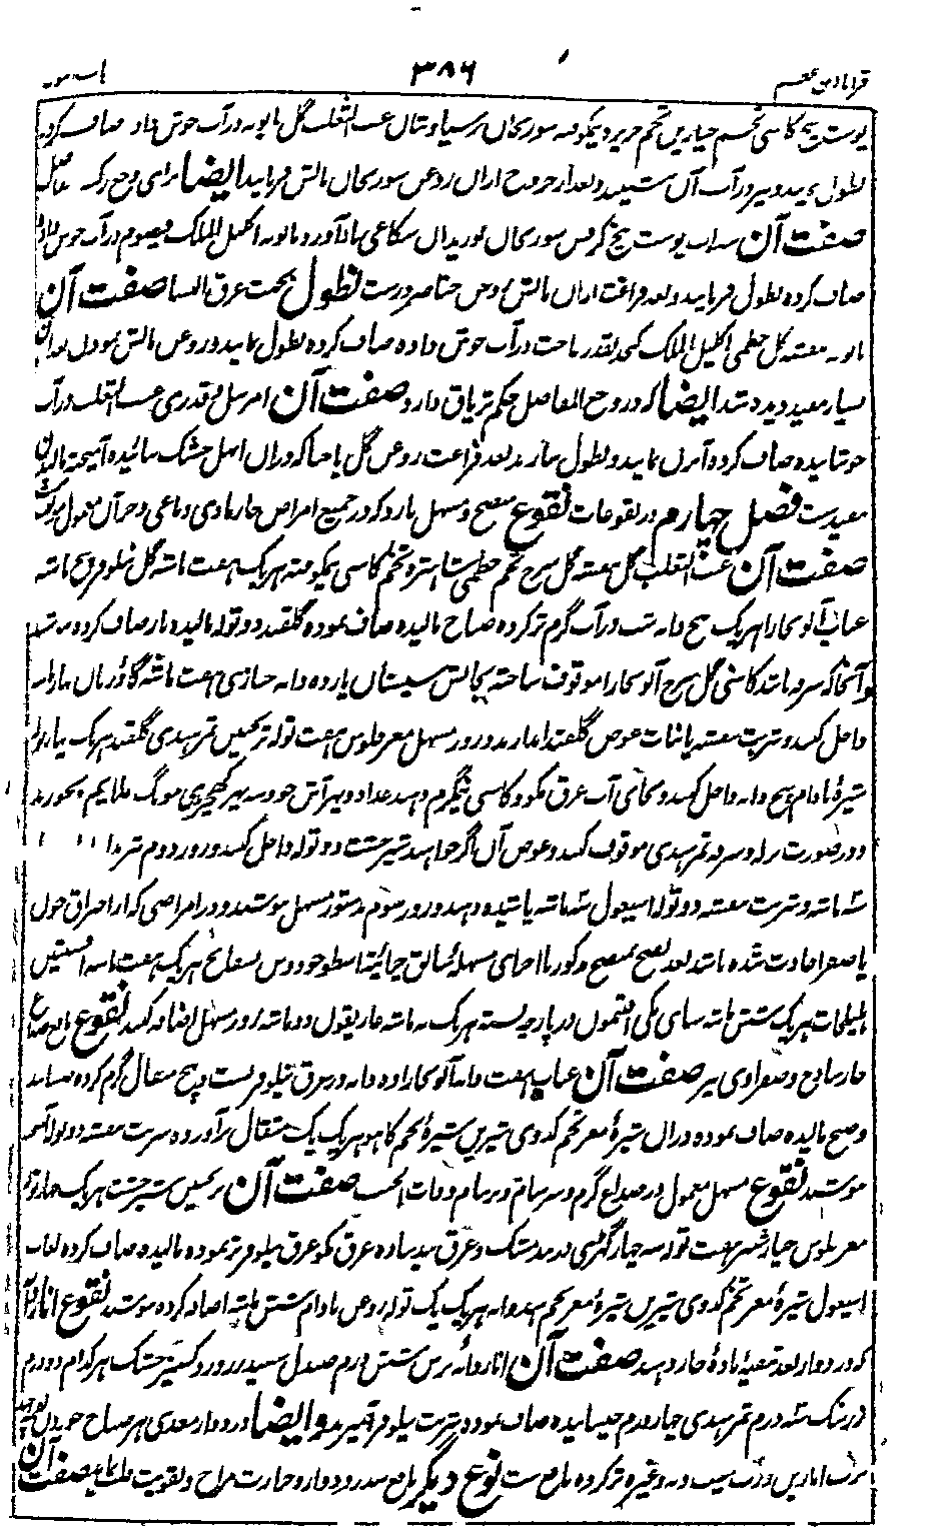 قرابادین اعظم ۳۸۶ باب
پوست بیخ کاسنی تخم خیارین تخم خربزه نیکوفته سورنجان پرسیاوشان عنب الثعلب گل بابونه در آب جوش داده صاف کرده
نطول نمایند و در آب آن نشینند و بعد از خروج از آن روغن سورنجان مالش فرمایند ایضا برای وجع رکبه
صفت آن سداب پوست بیخ کرفس سورنجان بوزیدان شکاعی بادآورد بابونه اکلیل الملک قیصوم در آب جوش داده
صاف کرده نطول فرمایند و بعد فراغت از آن مالش روغن حنا ضرورست نطول بجهت عرق النسا صفت آن
بابونه بنفشه گل خطمی اکلیل الملک کنجد بقدر حاجت در آب جوش داده صاف کرده نطول نمایند و روغن مالش نمودن بعد از آن
بسیار مفید دیده شد ایضا که در وجع المفاصل حکم تریاق دارد صفت آن قدری عنب الثعلب در آب
جوشانیده صاف کرده آبزن نمایند و نطول سازند بعد فراغت روغن گل یا حنا که در آن خشک سائیده آمیخته مالیدن
مفیدست فصل چهارم در نقوعات نقوع منضج و مسهل بارد که در جمیع امراض حار مادی دماغی و جز آن معمول
صفت آن عنب الثعلب گل بنفشه گل سرخ تخم خطمی شاهتره تخم کاسنی نیکوفته هر یک هفت ماشه گل نیلوفر پنج ماشه
عناب آلو بخارا هر یک پنج دانه شب در آب گرم تر کرده صباح مالیده صاف نموده گلقند دو توله مالیده باز صاف کرده بنوشند
و آنجا که سرفه باشد کاسنی گل سرخ آلو بخارا موقوف ساخته بجایش سپستان یازده دانه خبازی هفت ماشه گاوزبان
داخل کنند و شربت بنفشه یا نبات عوض گلقند اندازند و روز مسهل مغز فلوس هفت توله ترنجبین تمرهندی گلقند هر یک چهار توله
شیرهٔ بادام پنج دانه داخل کنند و بجای آب عرق مکو و کاسنی نیمگرم دهند غذا دوپهر آش جو و سه پهر کهچری مونگ ملایم بخورند
و در صورت نزله و سرفه تمرهندی موقوف کنند و عوض آن اگر خواهند شیرخشت دو توله داخل کنند و روز دوم تبرید
سه ماشه و شربت بنفشه دو توله اسپغول سه ماشه پاشیده دهند و روز سوم بدستور مسهل بنوشند و در امراضی که از احتراق خون
یا صفرا حادث شده باشد بعد نضج بمنضج مذکور با اجزای مسهله سابق چرائیتا اسطوخودوس بسفائج هر یک هفت ماشه افسنتین
هلیلجات هر یک شش ماشه سنای مکی افتیمون در پارچه بسته هر یک نه ماشه غاریقون دو ماشه روز مسهل اضافه کنند نقوع نافع صداع
حار ساذج و صفراوی نیز صفت آن عناب هفت دانه آلو بخارا ده دانه در عرق نیلوفر بیست و پنج مثقال گرم کرده خیسانند
و صبح مالیده صاف نموده در آن شیرهٔ مغز تخم کدوی شیرین شیرهٔ تخم کاهو هر یک یک مثقال برآورده شربت بنفشه دو توله
بنوشند نقوع مسهل معمول در صداع گرم و سرسام و برسام و ذات الجنب صفت آن ترنجبین شیرخشت هر یک چهار توله
مغز فلوس خیارشنبر هفت توله سه چهار گهری در بیدمشک و عرق بید ساده عرق مکو عرق نیلوفر تر نموده مالیده صاف کرده لعاب
اسپغول شیرهٔ مغز تخم کدوی شیرین شیرهٔ مغز تخم هندوانه هر یک یک توله روغن بادام شش ماشه اضافه کرده بنوشند نقوع انار دانه
که در دوار بعد تنقیهٔ مادهٔ حار دهند صفت آن انار دانه ترش شش درم صندل سفید زرورد کشنیز خشک هر کدام دو درم
زرشک سه درم تمرهندی چهار درم خیسانیده صاف نموده بشربت نیلوفر بنوشند و ایضا در دوار معدی هر صباح
شربت انارین و رب سیب و به و غیره تر کرده نافع ست نوع دیگر نافع سدر و دوار و حرارت مزاج و تقویت صفت آن